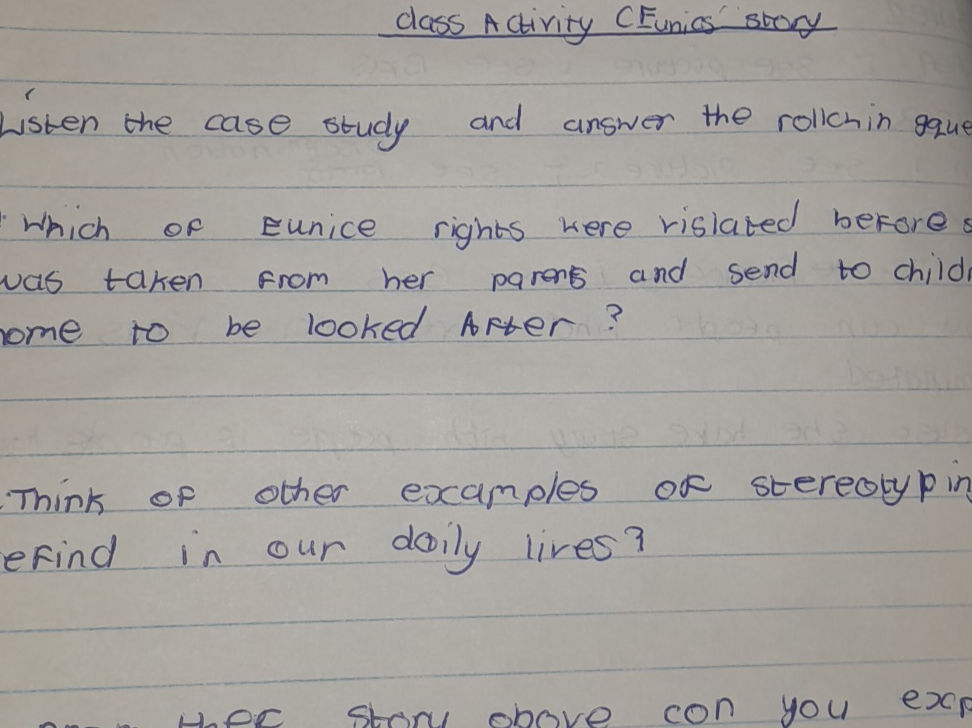 Class Activity (Eunics' story
Listen the case study and answer the rollchin gque
Which of Eunice rights were rislated before s
was taken from her parents and send to childr
home to be looked After?
Think of other examples of stereotypin
efind in our daily lives?
story above can you exp